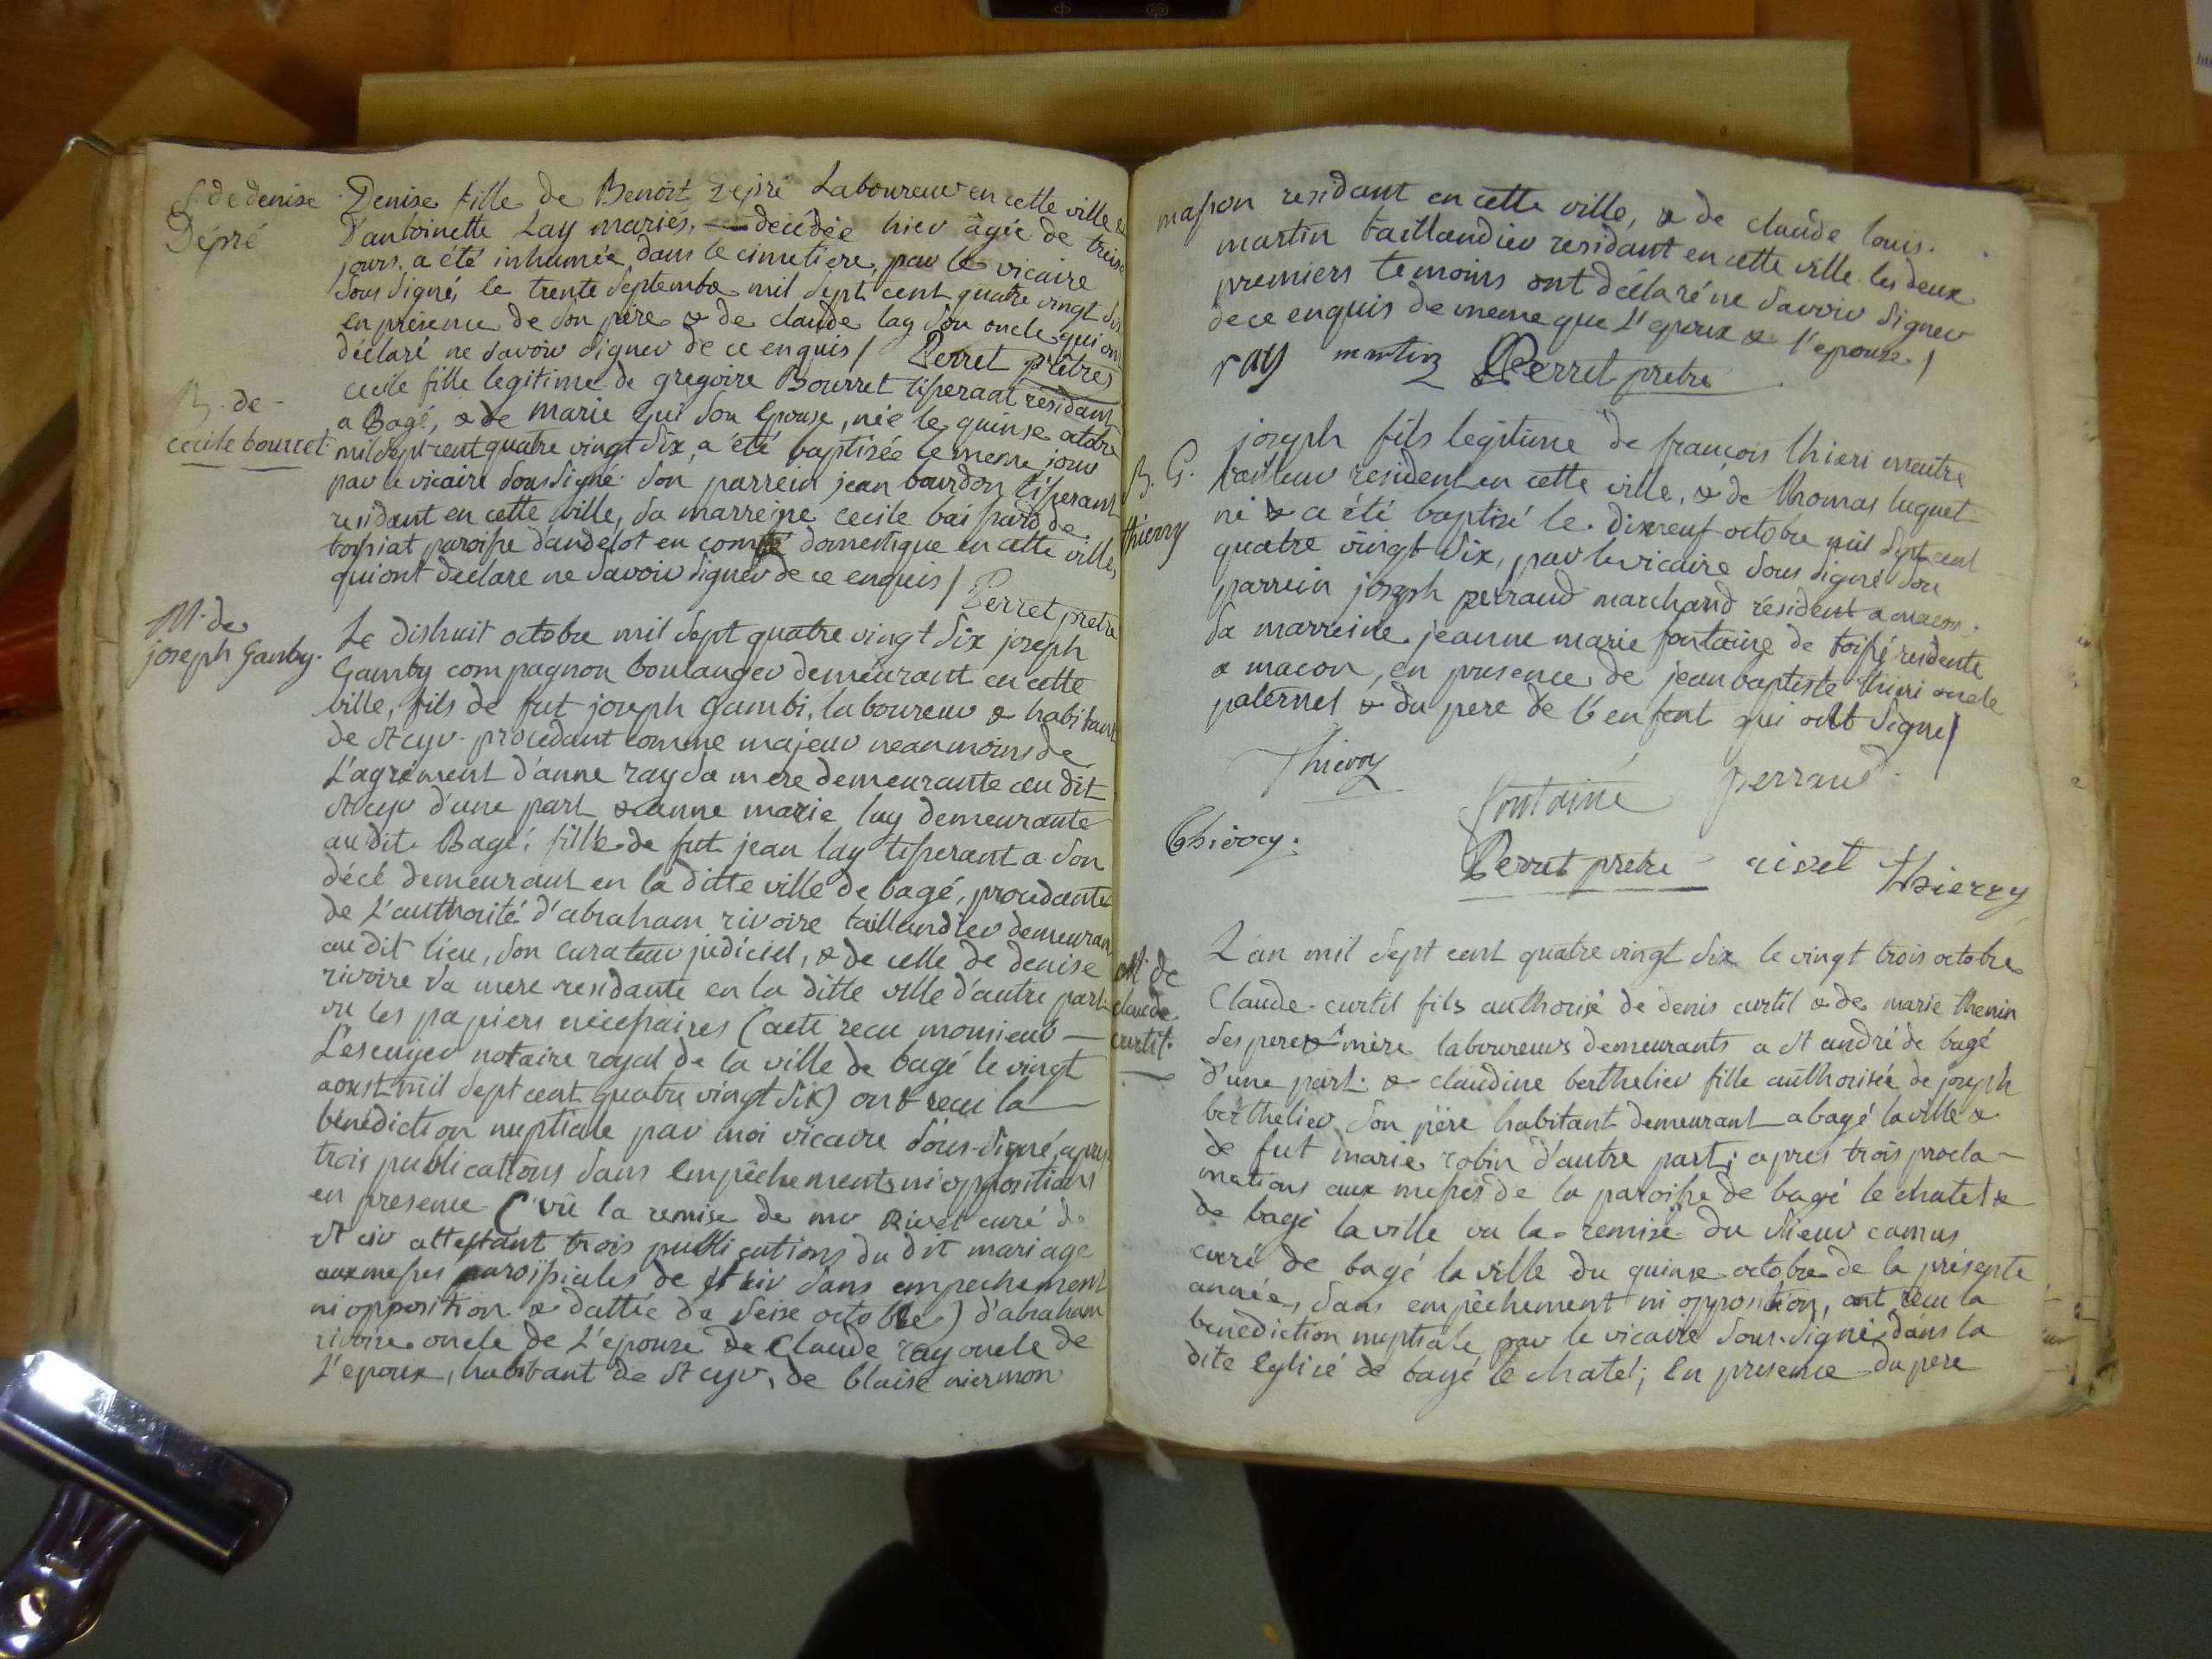 S. de denise
Dépré
Denise fille de Benoit Dépré Laboureur en cette ville &
d'antoinette Lay mariés, decédée hier agée de treise
jours, a été inhumée dans le cimetiere, par le vicaire
sous signé, le trente septembre mil sept cent quatre vingt six
en présence de son père & de claude lay son oncle qui ont
déclaré ne savoir signer de ce enquis / Perret prêtre
B. de
cecile bourret
cecile fille legitime de gregoire Bourret tisserant residant
a Bagé, & de marie gui son Epouse, née le quinse octobre
mil sept cent quatre vingt six, a été baptisée le meme jour
par le vicaire sous signé. son parrein jean bourdon tisserant
residant en cette ville, sa marreine cecile
toissiat paroisse d'andelot en comté domestique en cette ville,
qui ont declare ne savoir signer de ce enquis / Perret pretre
M. de
joseph Gamby.
Le dishuit octobre mil sept quatre vingt six joseph
Gamby compagnon boulanger demeurant en cette
ville, fils de fut joseph Gambi, laboureur & habitant
de st cyr. procedant comme majeur neanmoins de
L'agrément d'anne ray sa mere demeurante au dit
st cyr d'une part & anne marie lay demeurante
au dit Bagé, fille de fut jean lay tisserant a son
décé demeurant en la ditte ville de bagé, procedante
de L'authorité d'abraham rivoire taillandier demeurant
au dit lieu, son curateur judiciel, & de celle de denise
rivoire sa mere residante en la ditte ville d'autre part
vu les papiers nécessaires (acte recu monsieur —
L'escuyer notaire royal de la ville de bagé le vingt
aoust mil sept cent quatre vingt six) ont recu la
bénédiction nuptiale par moi vicaire sous-signé, apres
trois publications sans empêchements ni oppositions
en presence (vû la remise de mr Rivet curé de
st cir attestant trois publications du dit mariage
aux messes paroissiales de st cir sans empechement
ni opposition & dattée du seise octobre) d'abraham
rivoire oncle de L'epouse de Claude ray oncle de
L'epoux, habitant de st cyr, de blaise miermon
masson residant en cette ville, & de claude louis
martin taillandier residant en cette ville. les deux
premiers temoins ont déclaré ne savoir signer
de ce enquis de meme que L'epoux & l'epouse /
ray martin Perret pretre
B. G.
thierry
joseph fils legitime de françois thieri maitre
tailleur resident en cette ville, & de thomas luquet
né & a été baptisé le dixneuf octobre mil sept cent
quatre vingt six, par le vicaire sous signé son
parrein joseph perraud marchand résident a macon,
sa marreine jeanne marie fontaine de toissé residente
a macon, en presence de jean baptiste thieri oncle
paternel & du pere de l'enfent qui ont signé /
Thierry
fontaine perraud
Thierry.
Perret pretre rivet thierry
M. de
claude
curtil.
L'an mil sept cent quatre vingt six le vingt trois octobre
Claude curtil fils authorisé de denis curtil & de marie thenin
ses pere & mère laboureurs demeurants a st andré de bagé
d'une part. & claudine berthelier fille authorisée de joseph
berthelier son père habitant demeurant a bagé la ville &
de fut marie robin d'autre part; apres trois procla-
mations aux messes de la paroisse de bagé le chatel &
de bagé la ville vu la remise du sieur camus
curé de bagé la ville du quinse octobre de la présente
année, sans empêchement ni opposition, ont recu la
benediction nuptiale par le vicaire sous-signé dans la
dite Eglise de bagé le chatel; En presence du pere